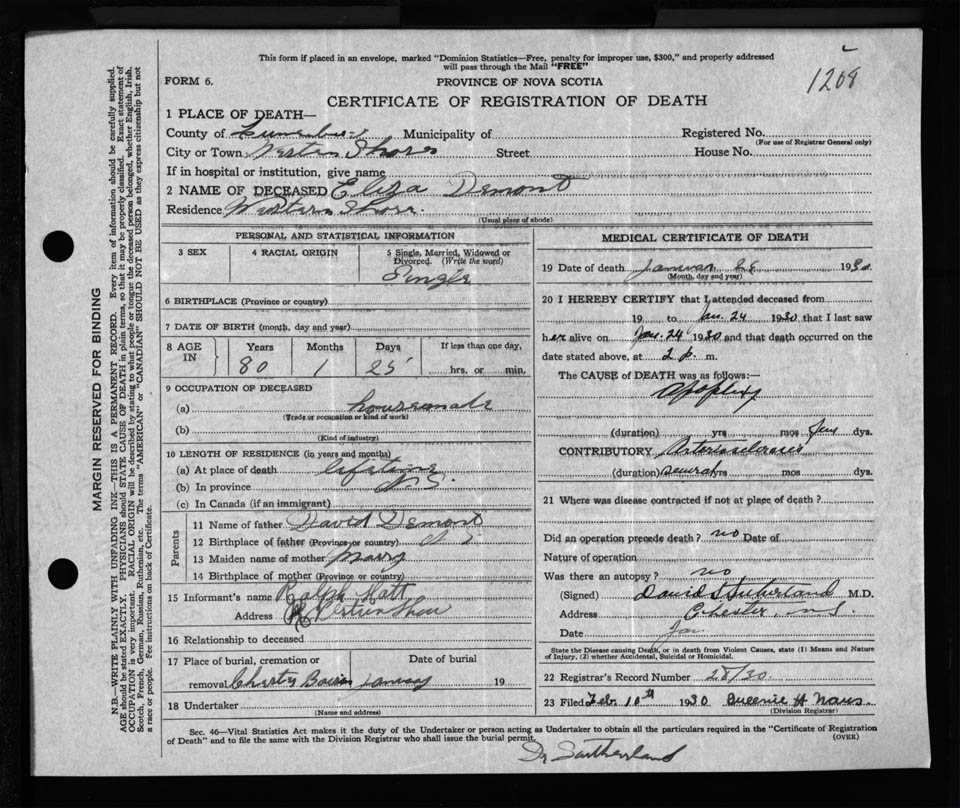 This form if placed in an envelope, marked "Dominion Statistics—Free, penalty for improper use, $300," and properly addressed
will pass through the Mail "FREE"
FORM 6.
PROVINCE OF NOVA SCOTIA
1208
CERTIFICATE OF REGISTRATION OF DEATH
1 PLACE OF DEATH—
County of Lunenburg Municipality of Registered No.
(For use of Registrar General only)
City or Town Western Shore Street House No.
If in hospital or institution, give name
2 NAME OF DECEASED Eliza Demont
Residence Western Shore
(Usual place of abode)
PERSONAL AND STATISTICAL INFORMATION
3 SEX 4 RACIAL ORIGIN 5 Single, Married, Widowed or
Divorced. (Write the word)
Single
6 BIRTHPLACE (Province or country)
7 DATE OF BIRTH (month, day and year)
8 AGE IN Years Months Days If less than one day,
80 1 25 hrs. or min.
9 OCCUPATION OF DECEASED
(a) housemaid
(Trade or occupation or kind of work)
(b)
(Kind of industry)
10 LENGTH OF RESIDENCE (in years and months)
(a) At place of death lifetime
(b) In province N.S.
(c) In Canada (if an immigrant)
Parents
11 Name of father David Demont
12 Birthplace of father (Province or country) N S
13 Maiden name of mother Marry
14 Birthplace of mother (Province or country)
15 Informant's name Ralph Hatt
Address Western Shore
16 Relationship to deceased
17 Place of burial, cremation or Date of burial
removal January 19
18 Undertaker
(Name and address)
MEDICAL CERTIFICATE OF DEATH
19 Date of death 1930
(Month, day and year)
20 I HEREBY CERTIFY that I attended deceased from
19 to Jan. 24 1930 that I last saw
her alive on Jan. 24 1930 and that death occurred on the
date stated above, at 2 p. m.
The CAUSE of DEATH was as follows:
Apoplexy
(duration) yrs mos few dys.
CONTRIBUTORY Arteriosclerosis
(duration) several yrs mos dys.
21 Where was disease contracted if not at place of death?
Did an operation precede death? no Date of
Nature of operation
Was there an autopsy? no
(Signed) David Sutherland M.D.
Address Chester, N.S.
Date Jan
State the Disease causing Death, or in death from Violent Causes, state (1) Means and Nature
of Injury, (2) whether Accidental, Suicidal or Homicidal.
22 Registrar's Record Number 28/30
23 Filed Feb. 10th 1930 Queenie H Naus
(Division Registrar)
Sec. 46—Vital Statistics Act makes it the duty of the Undertaker or person acting as Undertaker to obtain all the particulars required in the "Certificate of Registration
of Death" and to file the same with the Division Registrar who shall issue the burial permit. (OVER)
Dr Sutherland
MARGIN RESERVED FOR BINDING
N.B.—WRITE PLAINLY WITH UNFADING INK—THIS IS A PERMANENT RECORD. Every item of information should be carefully supplied.
AGE should be stated EXACTLY. PHYSICIANS should STATE CAUSE OF DEATH in plain terms, so that it may be properly classified. Exact statement of
OCCUPATION is very important. RACIAL ORIGIN will be described by stating to what people or tongue the deceased person belonged, whether English, Irish,
Scotch, French, German, Russian, Ruthenian, etc. The terms "AMERICAN" or "CANADIAN" SHOULD NOT BE USED as they express citizenship but not
a race or people. See instructions on back of Certificate.